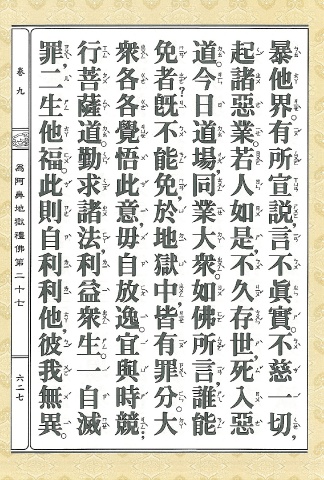 暴他界。有所宣說，言不真實。不慈一切，
起諸惡業。若人如是，不久存世，死入惡
道。今日道場，同業大眾，如佛所言，誰能
免者？既不能免，於地獄中皆有罪分。大
眾各各覺悟此意，毋自放逸。宜與時競，
行菩薩道。勤求諸法，利益眾生。一自滅
罪，二生他福。此則自利利他，彼我無異。
卷九
為阿鼻地獄禮佛第二十七
六二七